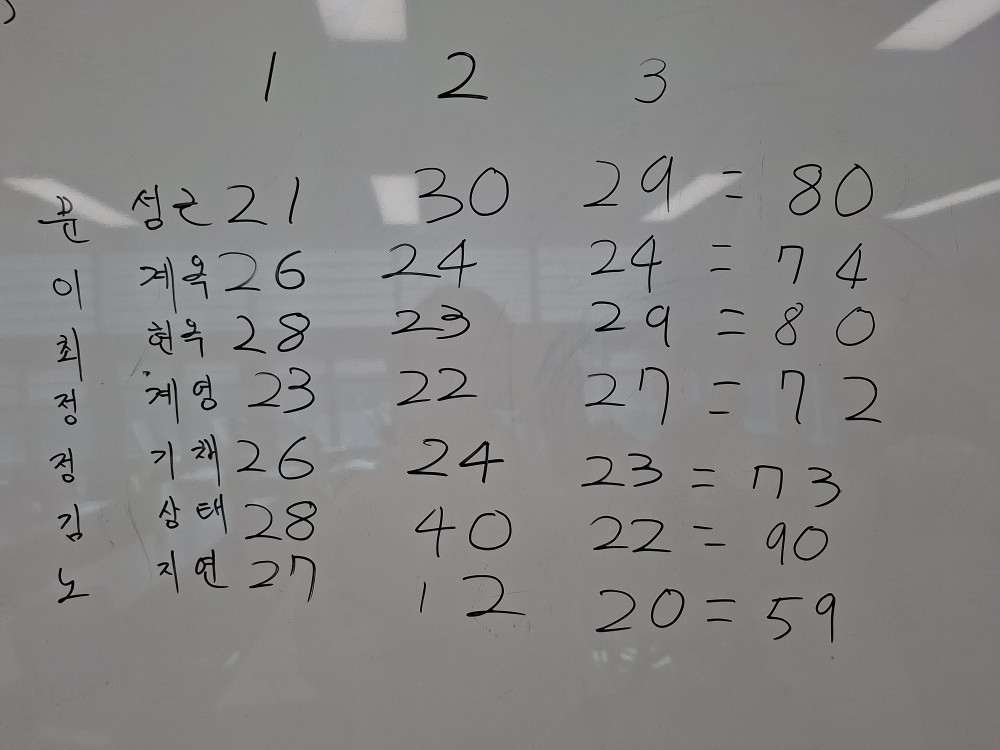 1 2 3
문 성근 21 30 29 = 80
이 계옥 26 24 24 = 74
최 현옥 28 23 29 = 80
정 계영 23 22 27 = 72
정 기채 26 24 23 = 73
김 상태 28 40 22 = 90
노 지연 27 12 20 = 59